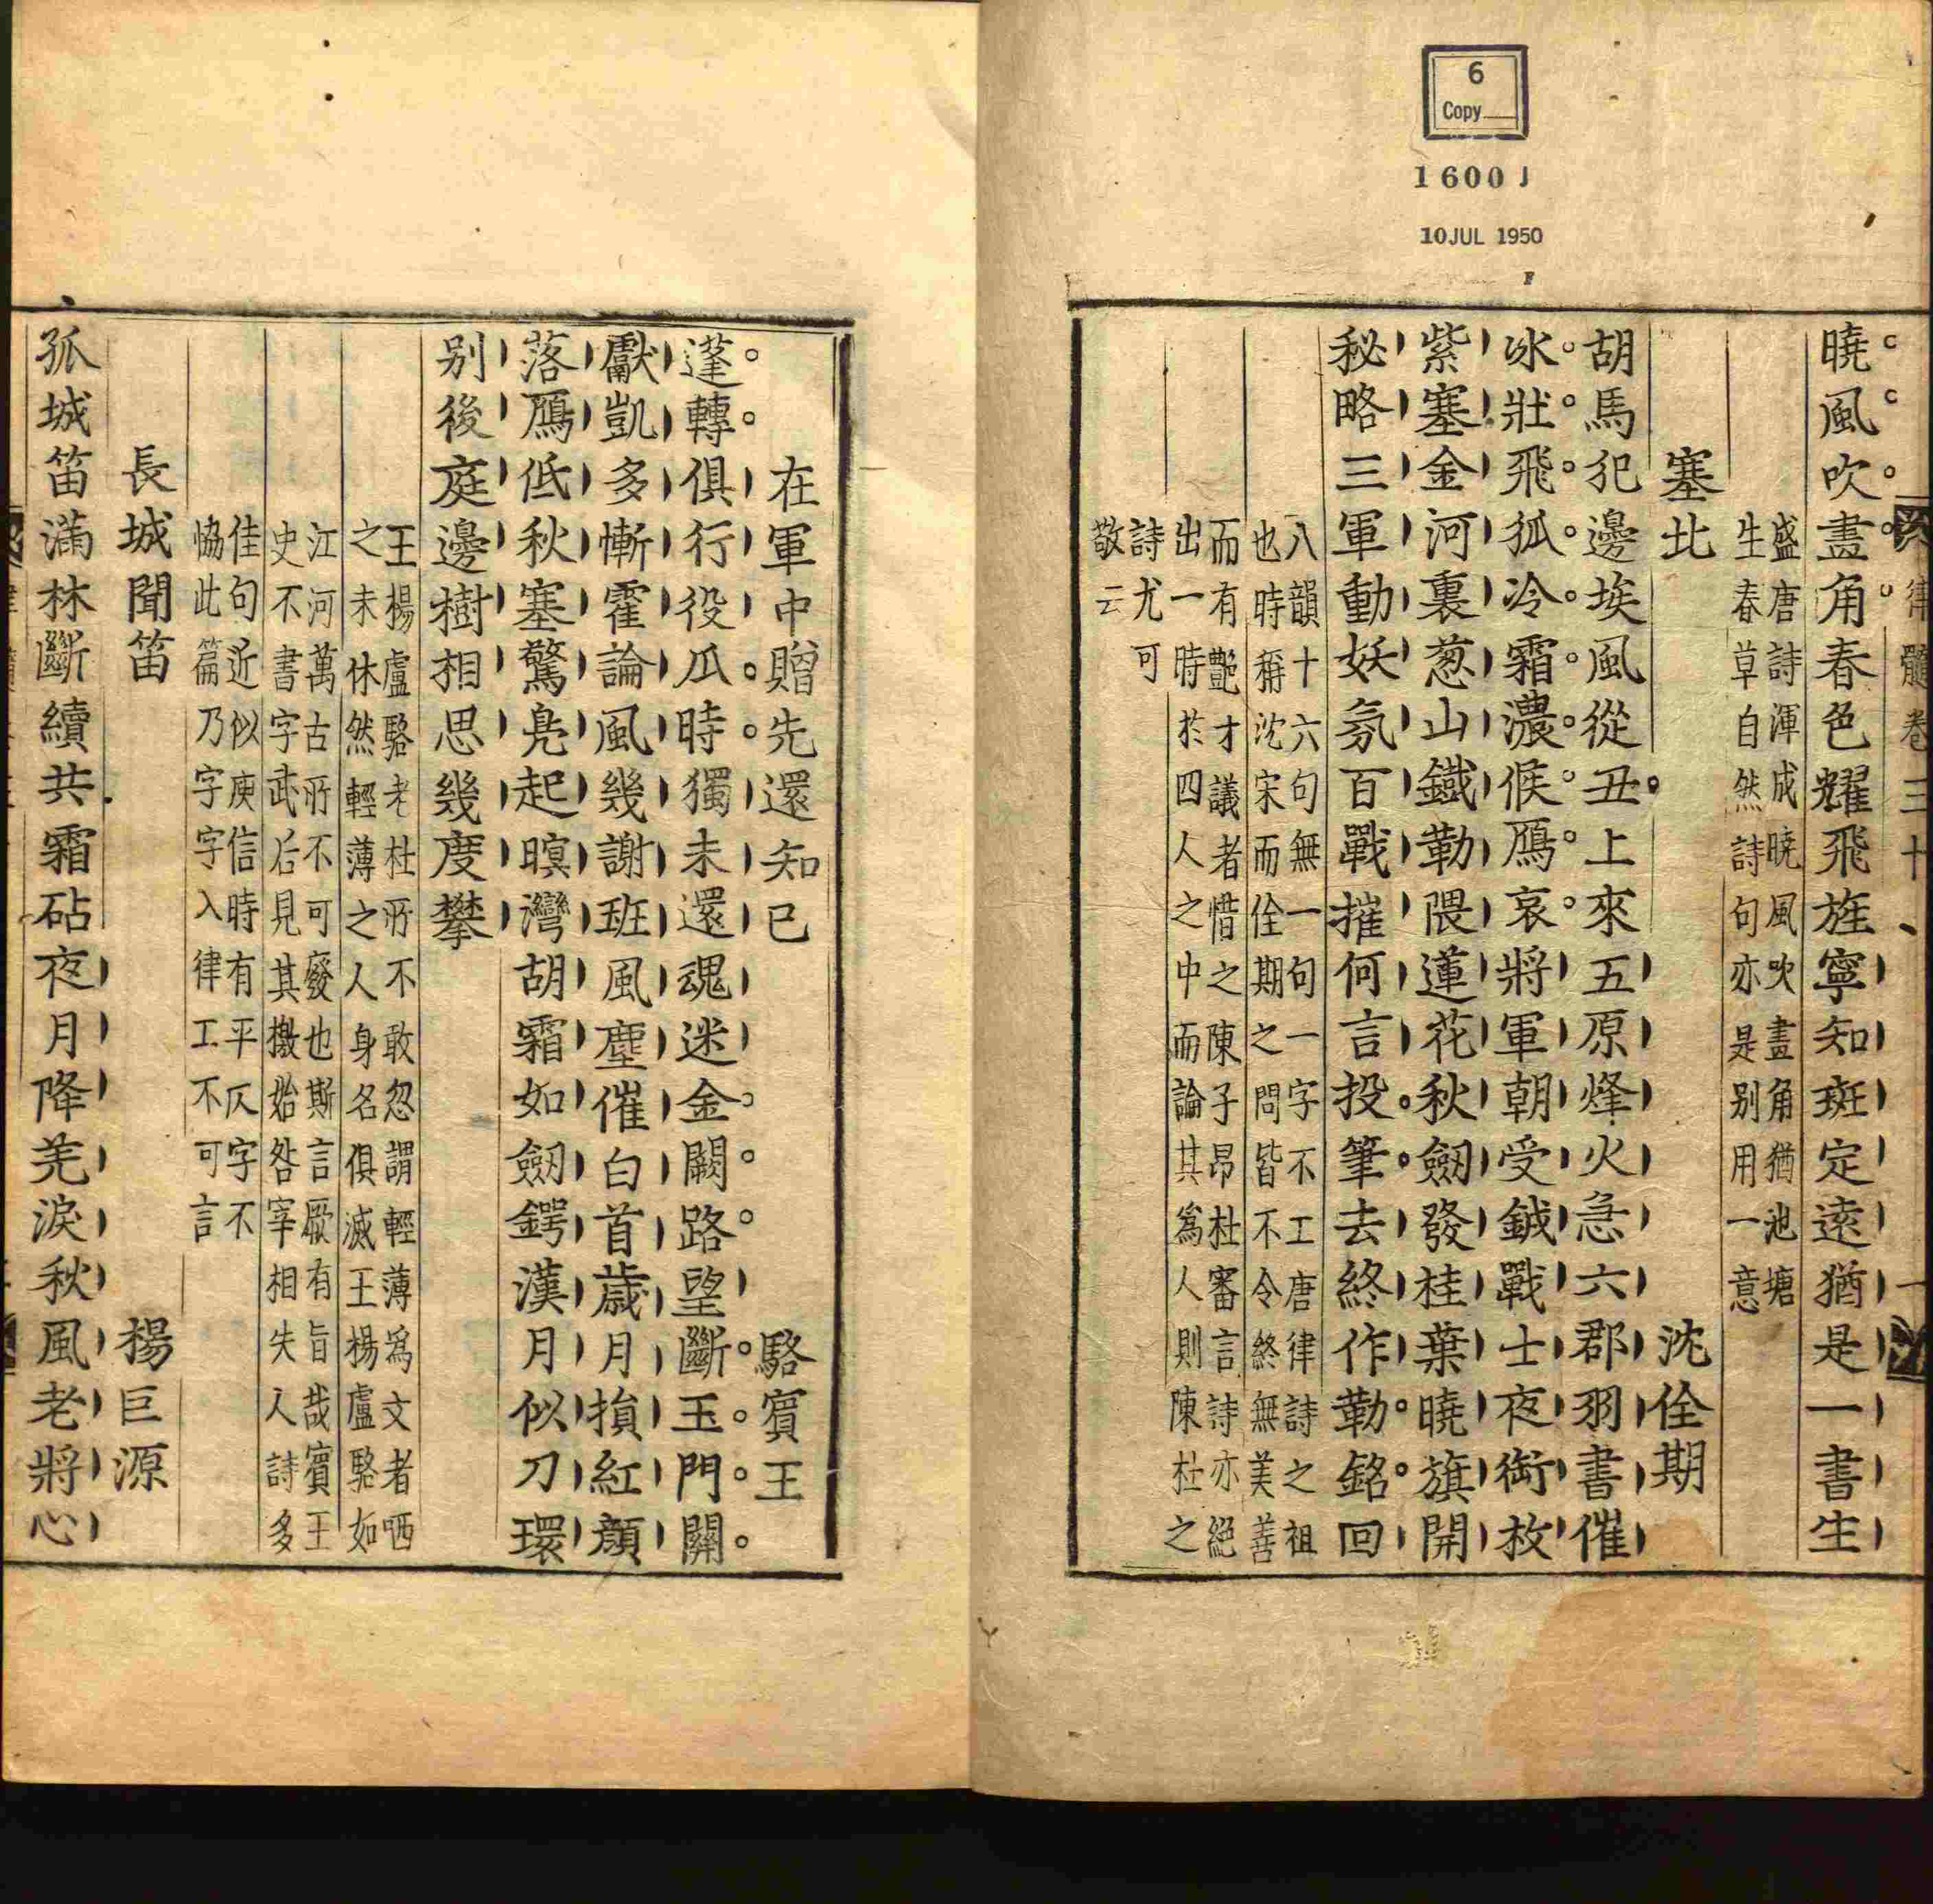 6
Copy
1600 J
10 JUL 1950
律髓卷三十
曉風吹畫角春色耀飛旌寧知班定遠猶是一書生
盛唐詩渾成曉風吹畫角猶池塘
生春草自然詩句亦是别用一意
塞北 沈佺期
胡馬犯邊埃風從丑上來五原烽火急六郡羽書催
冰壯飛狐冷霜濃候鴈哀將軍朝受鉞戰士夜銜枚
紫塞金河裏葱山鐵勒隈蓮花秋劒發桂葉曉旗開
秘略三軍動妖氛百戰摧何言投筆去終作勒銘回
八韻十六句無一句一字不工唐律詩之祖
也時稱沈宋而佺期之問皆不令終無美善
而有艷才議者惜之陳子昂杜審言詩亦絕
出一時於四人之中而論其爲人則陳杜之
詩尤可
敬云
在軍中贈先還知已 駱賓王
蓬轉俱行役瓜時獨未還魂迷金闕路望斷玉門關
獻凱多慚霍論風幾謝班風塵催白首歲月損紅顏
落鴈低秋塞驚鳧起暝灣胡霜如劒鍔漢月似刀環
别後庭邊樹相思幾度攀
王楊盧駱老杜所不敢忽謂輕薄爲文者哂
之未休然輕薄之人身名俱滅王楊盧駱如
江河萬古所不可廢也斯言厥有旨哉賓王
史不書字武后見其檄始咎宰相失人詩多
佳句近似庾信時有平仄字不
恊此篇乃字字入律工不可言
長城聞笛 楊巨源
孤城笛滿林斷續共霜砧夜月降羌淚秋風老將心